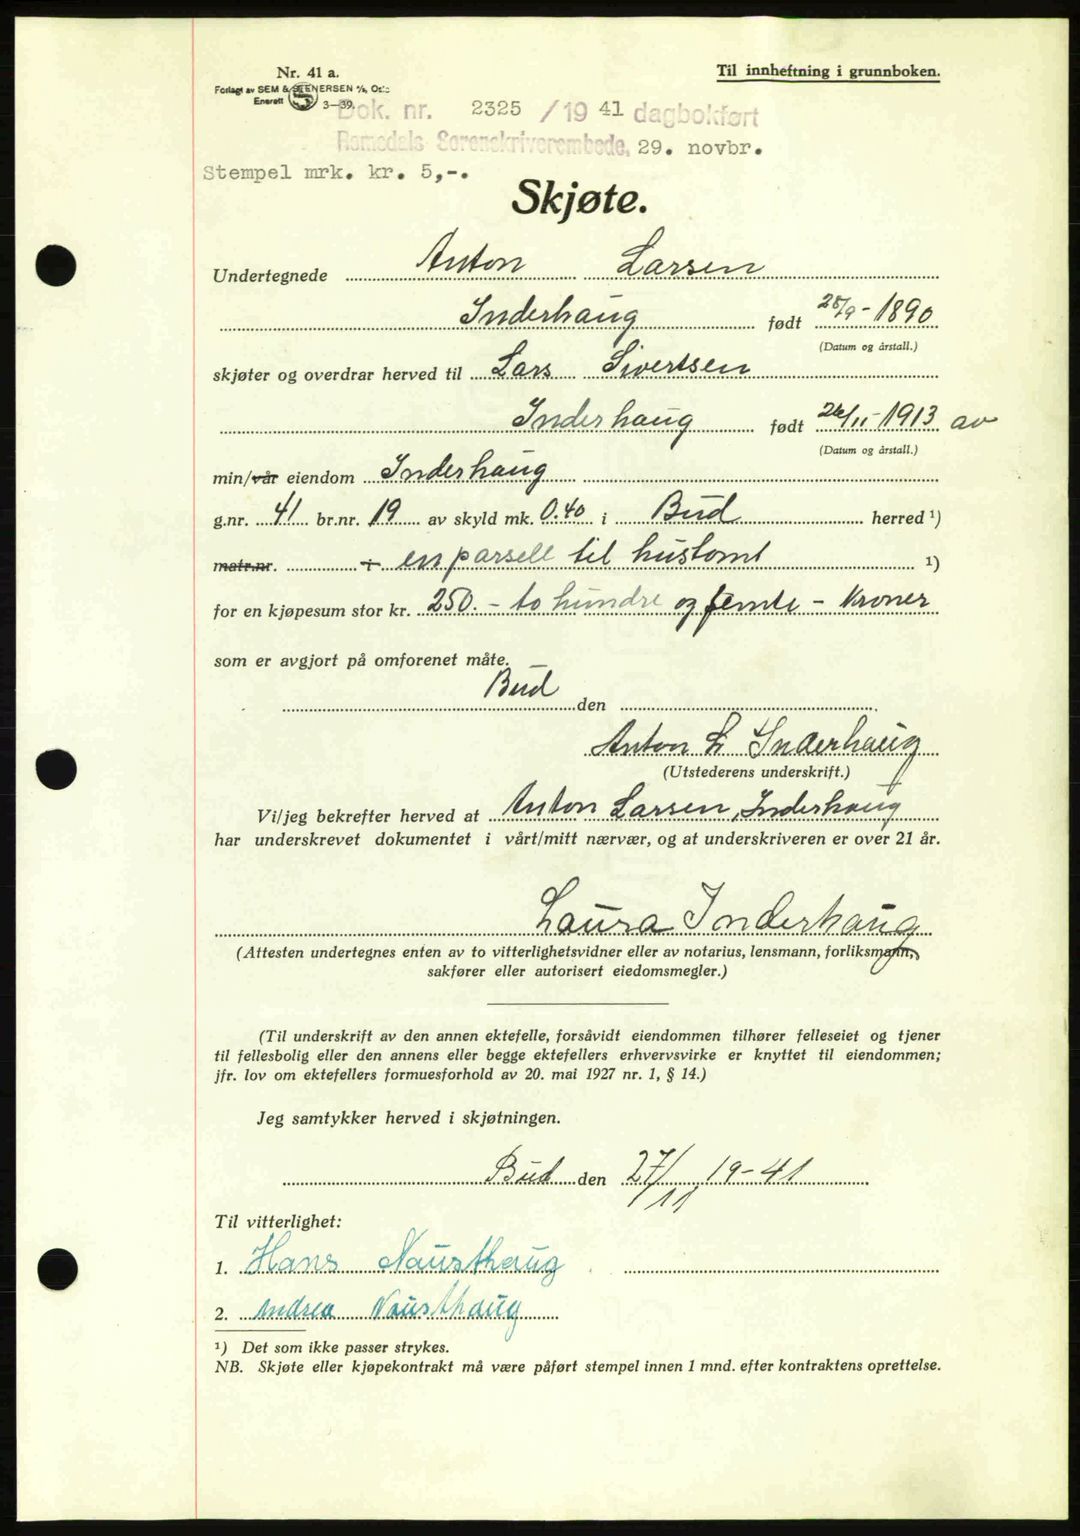 Nr. 41 a.
Til innheftning i grunnboken.
Forlagt av SEM & STENERSEN A/S, Oslo
Enerett 3—39.
Dok. nr. 2325 / 19 41 dagbokført
Romsdals Sorenskriverembede, 29. novbr.
Stempel mrk. kr. 5,-.
Skjøte.
Undertegnede Anton Larsen
Inderhaug født 28/9-1890
(Datum og årstall.)
skjøter og overdrar herved til Lars Sivertsen
Inderhaug født 26/11-1913 av
(Datum og årstall.)
min/vår eiendom Inderhaug
g.nr. 41 br.nr. 19 av skyld mk. 0.40 i Bud herred ¹)
matr.nr. i en parsell til hustomt ¹)
for en kjøpesum stor kr. 250.- to hundre og femti - Kroner
som er avgjort på omforenet måte.
Bud den
Anton L Inderhaug
(Utstederens underskrift.)
Vi/jeg bekrefter herved at Anton Larsen, Inderhaug
har underskrevet dokumentet i vårt/mitt nærvær, og at underskriveren er over 21 år.
Laura Inderhaug
(Attesten undertegnes enten av to vitterlighetsvidner eller av notarius, lensmann, forliksmann,
sakfører eller autorisert eiedomsmegler.)
(Til underskrift av den annen ektefelle, forsåvidt eiendommen tilhører felleseiet og tjener
til fellesbolig eller den annens eller begge ektefellers erhvervsvirke er knyttet til eiendommen;
jfr. lov om ektefellers formuesforhold av 20. mai 1927 nr. 1, § 14.)
Jeg samtykker herved i skjøtningen.
Bud den 27/11 19-41
Til vitterlighet:
1. Hans Nausthaug
2. Andrea Nausthaug
¹) Det som ikke passer strykes.
NB. Skjøte eller kjøpekontrakt må være påført stempel innen 1 mnd. efter kontraktens oprettelse.